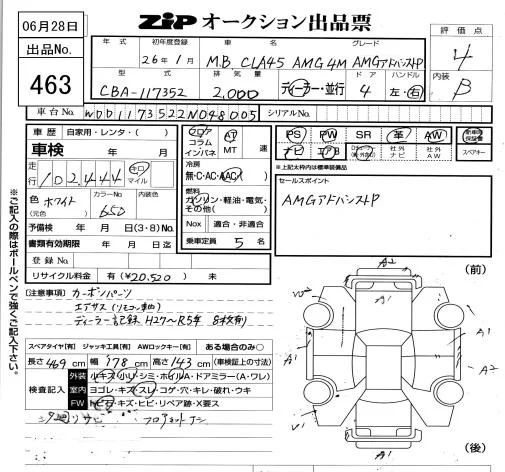 06月28日
出品No.
463
ZIP オークション出品票
年式 初年度登録 車名 グレード
26年1月 M.B. CLA45 AMG 4M AMGアドバンストP
型式 排気量 ドア ハンドル
CBA-117352 2,000 ディーラー・並行 4 左・右
評価点
4
内装
B
車台No. WDD1173522N048005 シリアルNo.
車歴 自家用・レンタ・( )
車検 年 月
走行 102,444 キロ マイル
色 ホワイト カラーNo. 650 内装色
(元色)
予備検 年 月 日(3・8)No.
書類有効期限 年 月 日迄
登録No.
リサイクル料金 有(¥20,520) 未
フロア コラム インパネ
AT MT 速
冷房
無・C・AC・AAC
燃料
ガソリン・軽油・電気・その他( )
Nox 適合・非適合
乗車定員 5 名
PS PW SR 革 AW
ナビ エアB 社外ナビ 社外AW
新車時保証書
スペアキー
※上記太枠内は標準装備品
セールスポイント
AMGアドバンストP
[注意事項] カーボンパーツ
ディーラー記録 H27〜R5年 8枚有
スペアタイヤ[有] ジャッキ工具[有] AWロックキー[有] ある場合のみ○
長さ469cm 幅178cm 高さ143cm (車検証上の寸法)
検査記入
外装 小キズ・小リ・シミ・ホイルA・ドアミラー(A・ワレ)
室内 ヨゴレ・キズ・スレ・コゲ・穴・キレ・破れ・ウキ
FW トビ石・キズ・ヒビ・リペア跡・X要ス
下廻りサビ
※ご記入の際はボールペンで強くご記入下さい。
(前)
A2
A1
A1
A1
A2
V1
A1
(後)